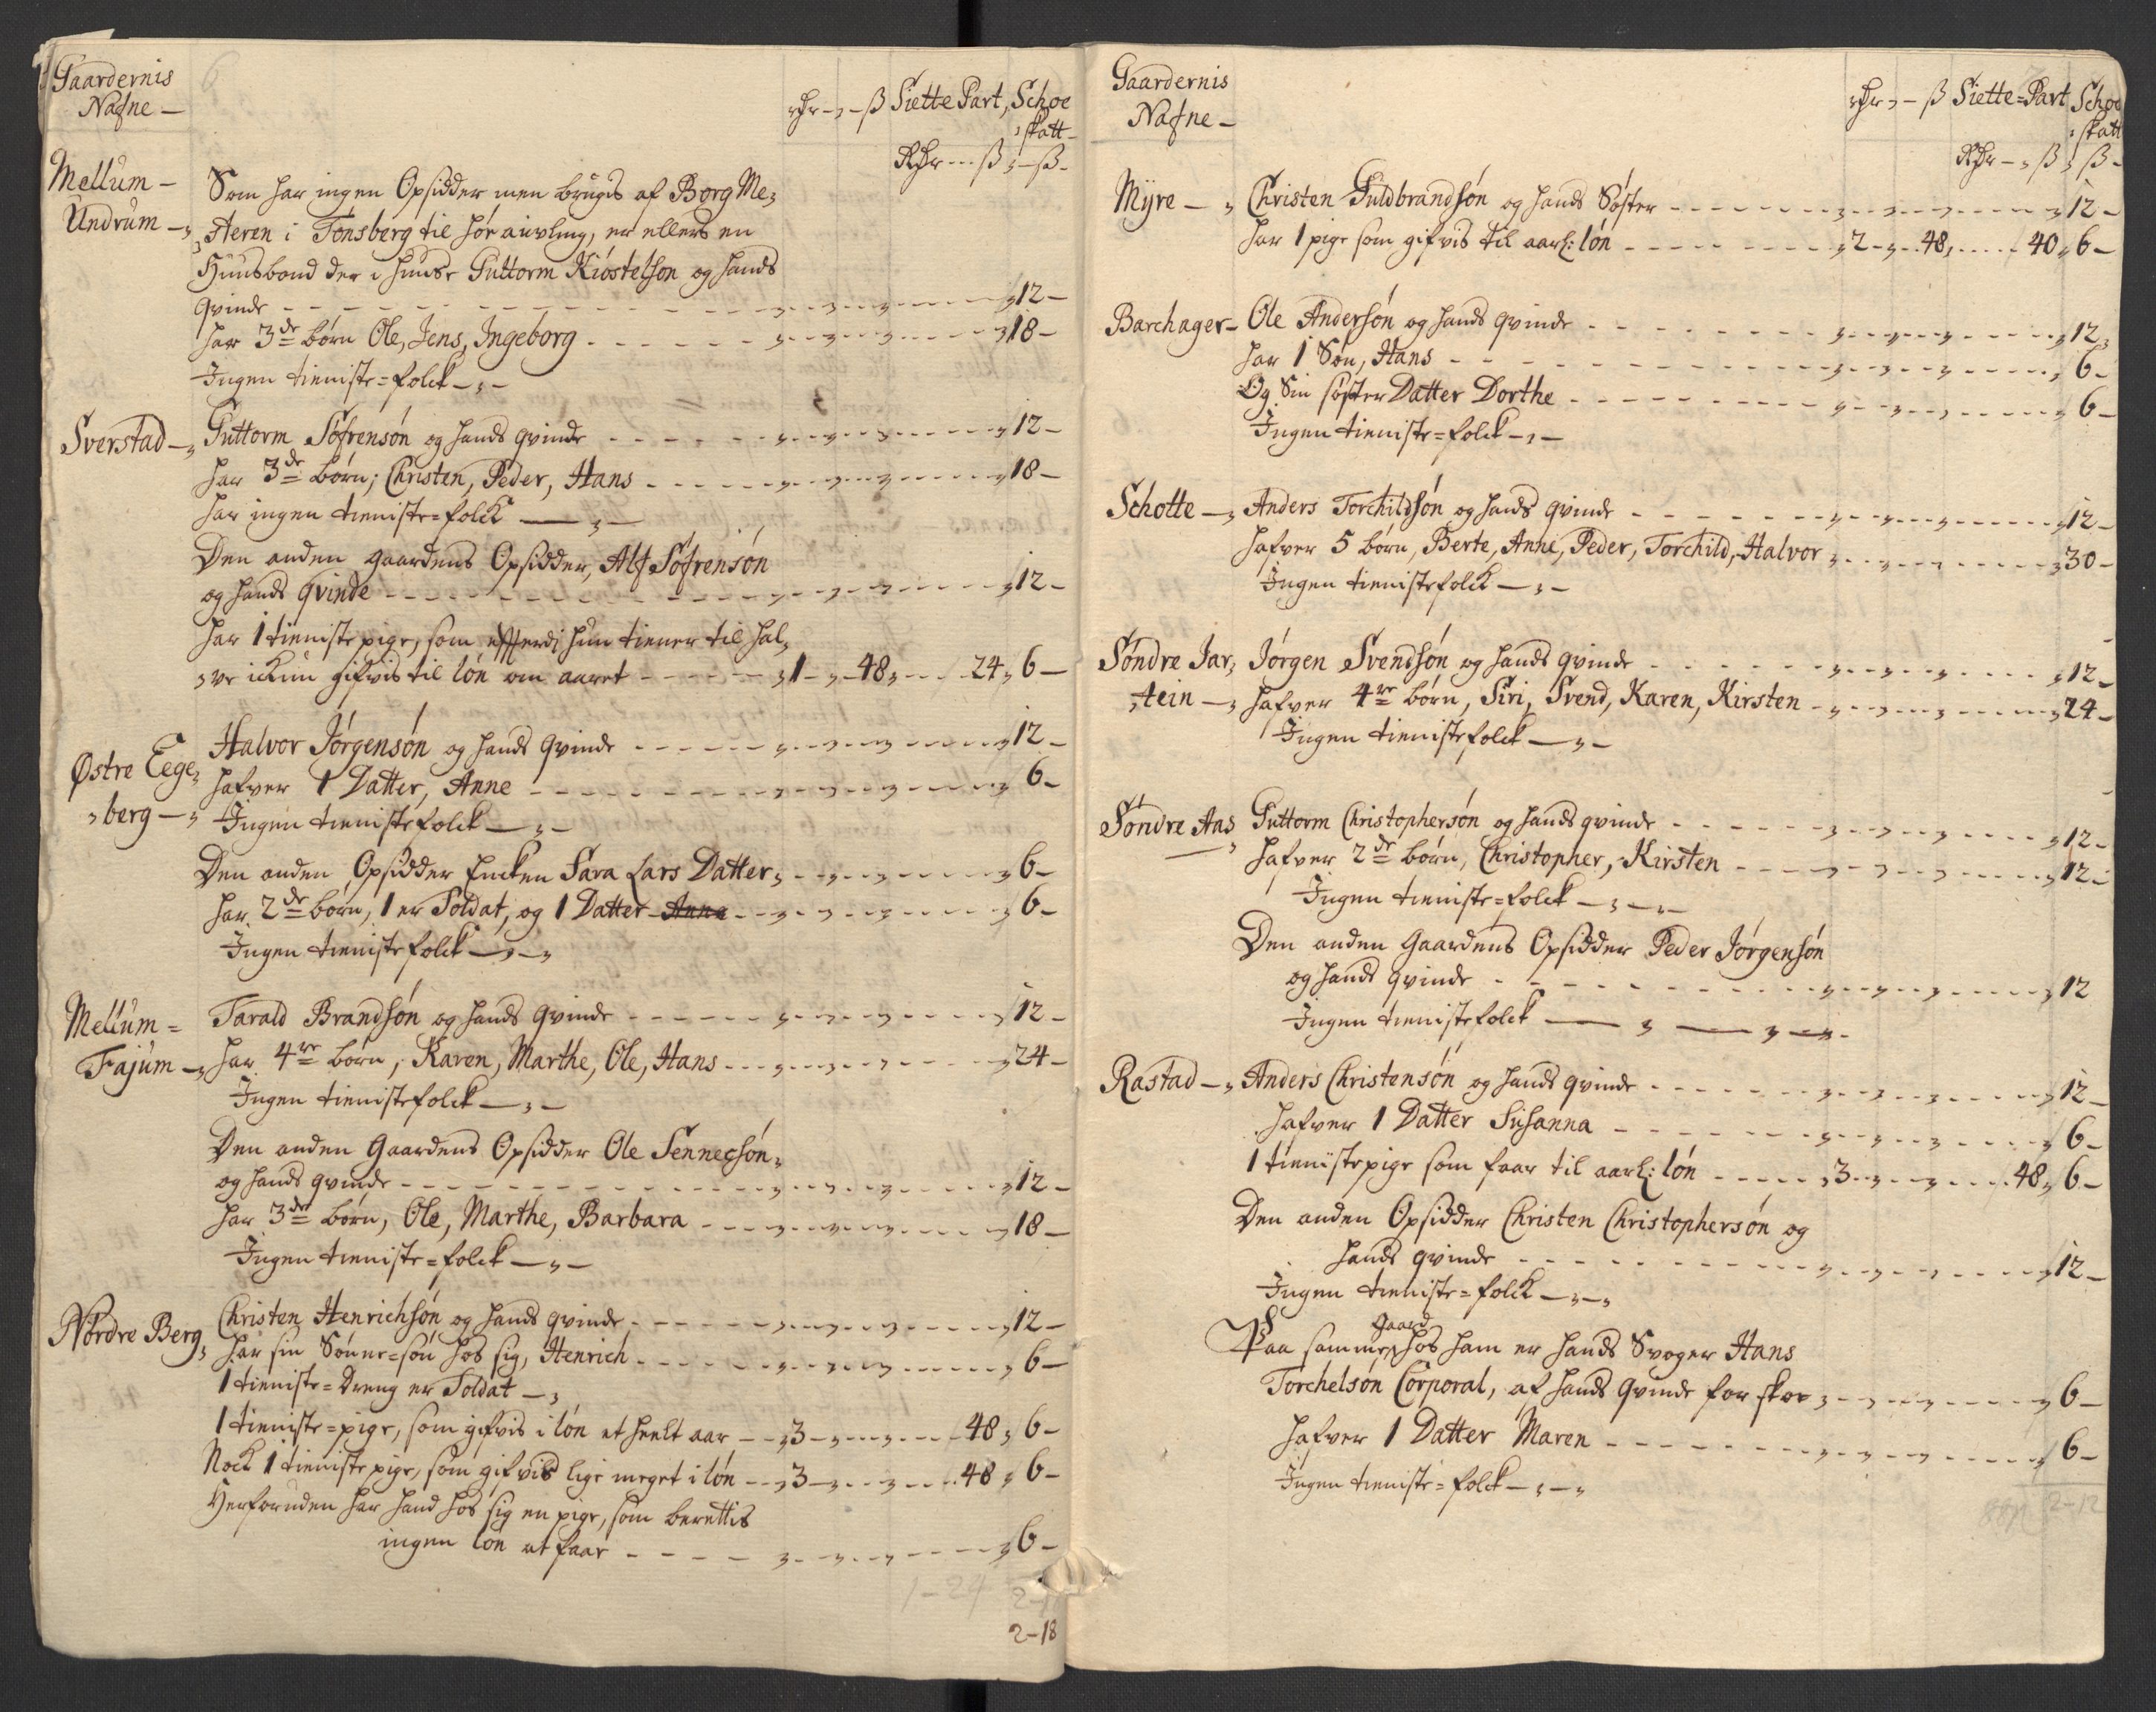 Gaardernis
Nafne —
rdr – , – ß Siette Part, Schoe
skatt –
Rdr --- ß , – ß –
Mellum –
Undrum –,
Som har ingen Opsidder men brugis af Borg Me,
,steren i Tønsberg til hør auvling, er ellers en
Huusbond der i huuse Guttorm Kiøstelsøn og hands
qvinde - - - 12 –
har 3de børn Ole, Jens, Ingeborg - - - 18 –
Ingen tieniste=folck – , –
Sverstad –,
Guttorm Søfrensøn og hands qvinde - - - 12 –
har 3de børn; Christen, Peder, Hans - - - 18 –
har ingen tieniste=folck — , —
Den anden gaardens Opsidder, Alf Søfrensøn
og hands qvinde - - - 12 –
har 1 tieniste pige, som effterdj hun tiener til hal,
,ve ickun gifvis til løn om aaret - - - 1 – 48, - - 24, 6 –
Østre Eege,
,berg –,
Halvor Jørgensøn og hands qvinde - - - 12 –
hafver 1 Datter, Anne - - - 6 –
Ingen tieniste folck – , –
Den anden Opsidder Encken Sara Lars Datter, - - - 6 –
har 2de børn, 1 er Soldat, og 1 Datter Anna - - - 6 –
Ingen tieniste folck – , –,
Mellum =
Fajum –,
Tarald Brandsøn og hands qvinde - - - 12 –
har 4re børn, Karen, Marthe, Ole, Hans - - - 24 –
Ingen tieniste folck – , –
Den anden Gaardens Opsidder Ole Sennegsøn,
og hands qvinde - - - 12 –
har 3de børn, Ole, Marthe, Barbara - - - 18 –
Ingen tieniste=folck – , –
Nordre Berg,
Christen Henrichsøn og hands qvinde - - - 12 –
har sin Sønne=søn hos sig, Henrich - - - 6 –
1 tieniste=Dreng er Soldat – ,
1 tieniste=pige, som gifvis i løn et heelt aar - - 3 - - - 48, 6 –
Nock 1 tieniste pige, som gifvis lige meget i løn - - 3 - - - 48, 6 –
Herforuden har hand hos sig en pige, som berettis
ingen løn at faar - - - 6 –
1 – 24
2 – 18
Gaardernis
Nafne –
rdr , – ß Siette=Part Schoe
skatt
Rdr – , ß , ß –
Myre – ,
Christen Guldbrandsøn og hands Søster - - - 12 –
har 1 pige som gifvis til aarl: løn - - - 2 – 48, - - 40, 6 –
Barchager –
Ole Andersøn og hands qvinde - - - 12,
har 1 Søn, Hans - - - 6 –
Og Sin søster Datter Dorthe - - - 6 –
Ingen tieniste=folck – , –
Schotte –,
Anders Torchildsøn og hands qvinde - - - 12 –
hafver 5 børn, Berte, Anne, Peder, Torchild, Halvor - - - 30 –
Ingen tieniste folck – , –
Søndre Jar,
,tein –,
Jørgen Svendsøn og hands qvinde - - - 12 –
hafver 4re børn, Siri, Svend, Karen, Kirsten - - - 24 –
Ingen tieniste folck – , –
Søndre Aas,
Guttorm Christophersøn og hands qvinde - - - 12 –
hafver 2de børn, Christopher, Kirsten - - - 12 –
Ingen tieniste=folck – , – , –
Den anden Gaardens Opsidder Peder Jørgensøn
og hands qvinde - - - 12
Ingen tieniste folck — , — , –
Rastad –,
Anders Christensøn og hands qvinde - - - 12 –
hafver 1 Datter Susanna - - - 6 –
1 tieniste pige som faar til aarl: løn - - - 3 - - - 48, 6 –
Den anden Opsidder Christen Christophersøn og
hands qvinde - - - 12 –
Ingen tieniste=folck – , – ,
Paa samme gaard hos ham er hands Svoger Hans
Torchelsøn Corporal, af hands qvinde for skoe - - - 6 –
hafver 1 Datter Maren - - - 6 –
Ingen tieniste=folck – , – ,
88ß 2 – 12